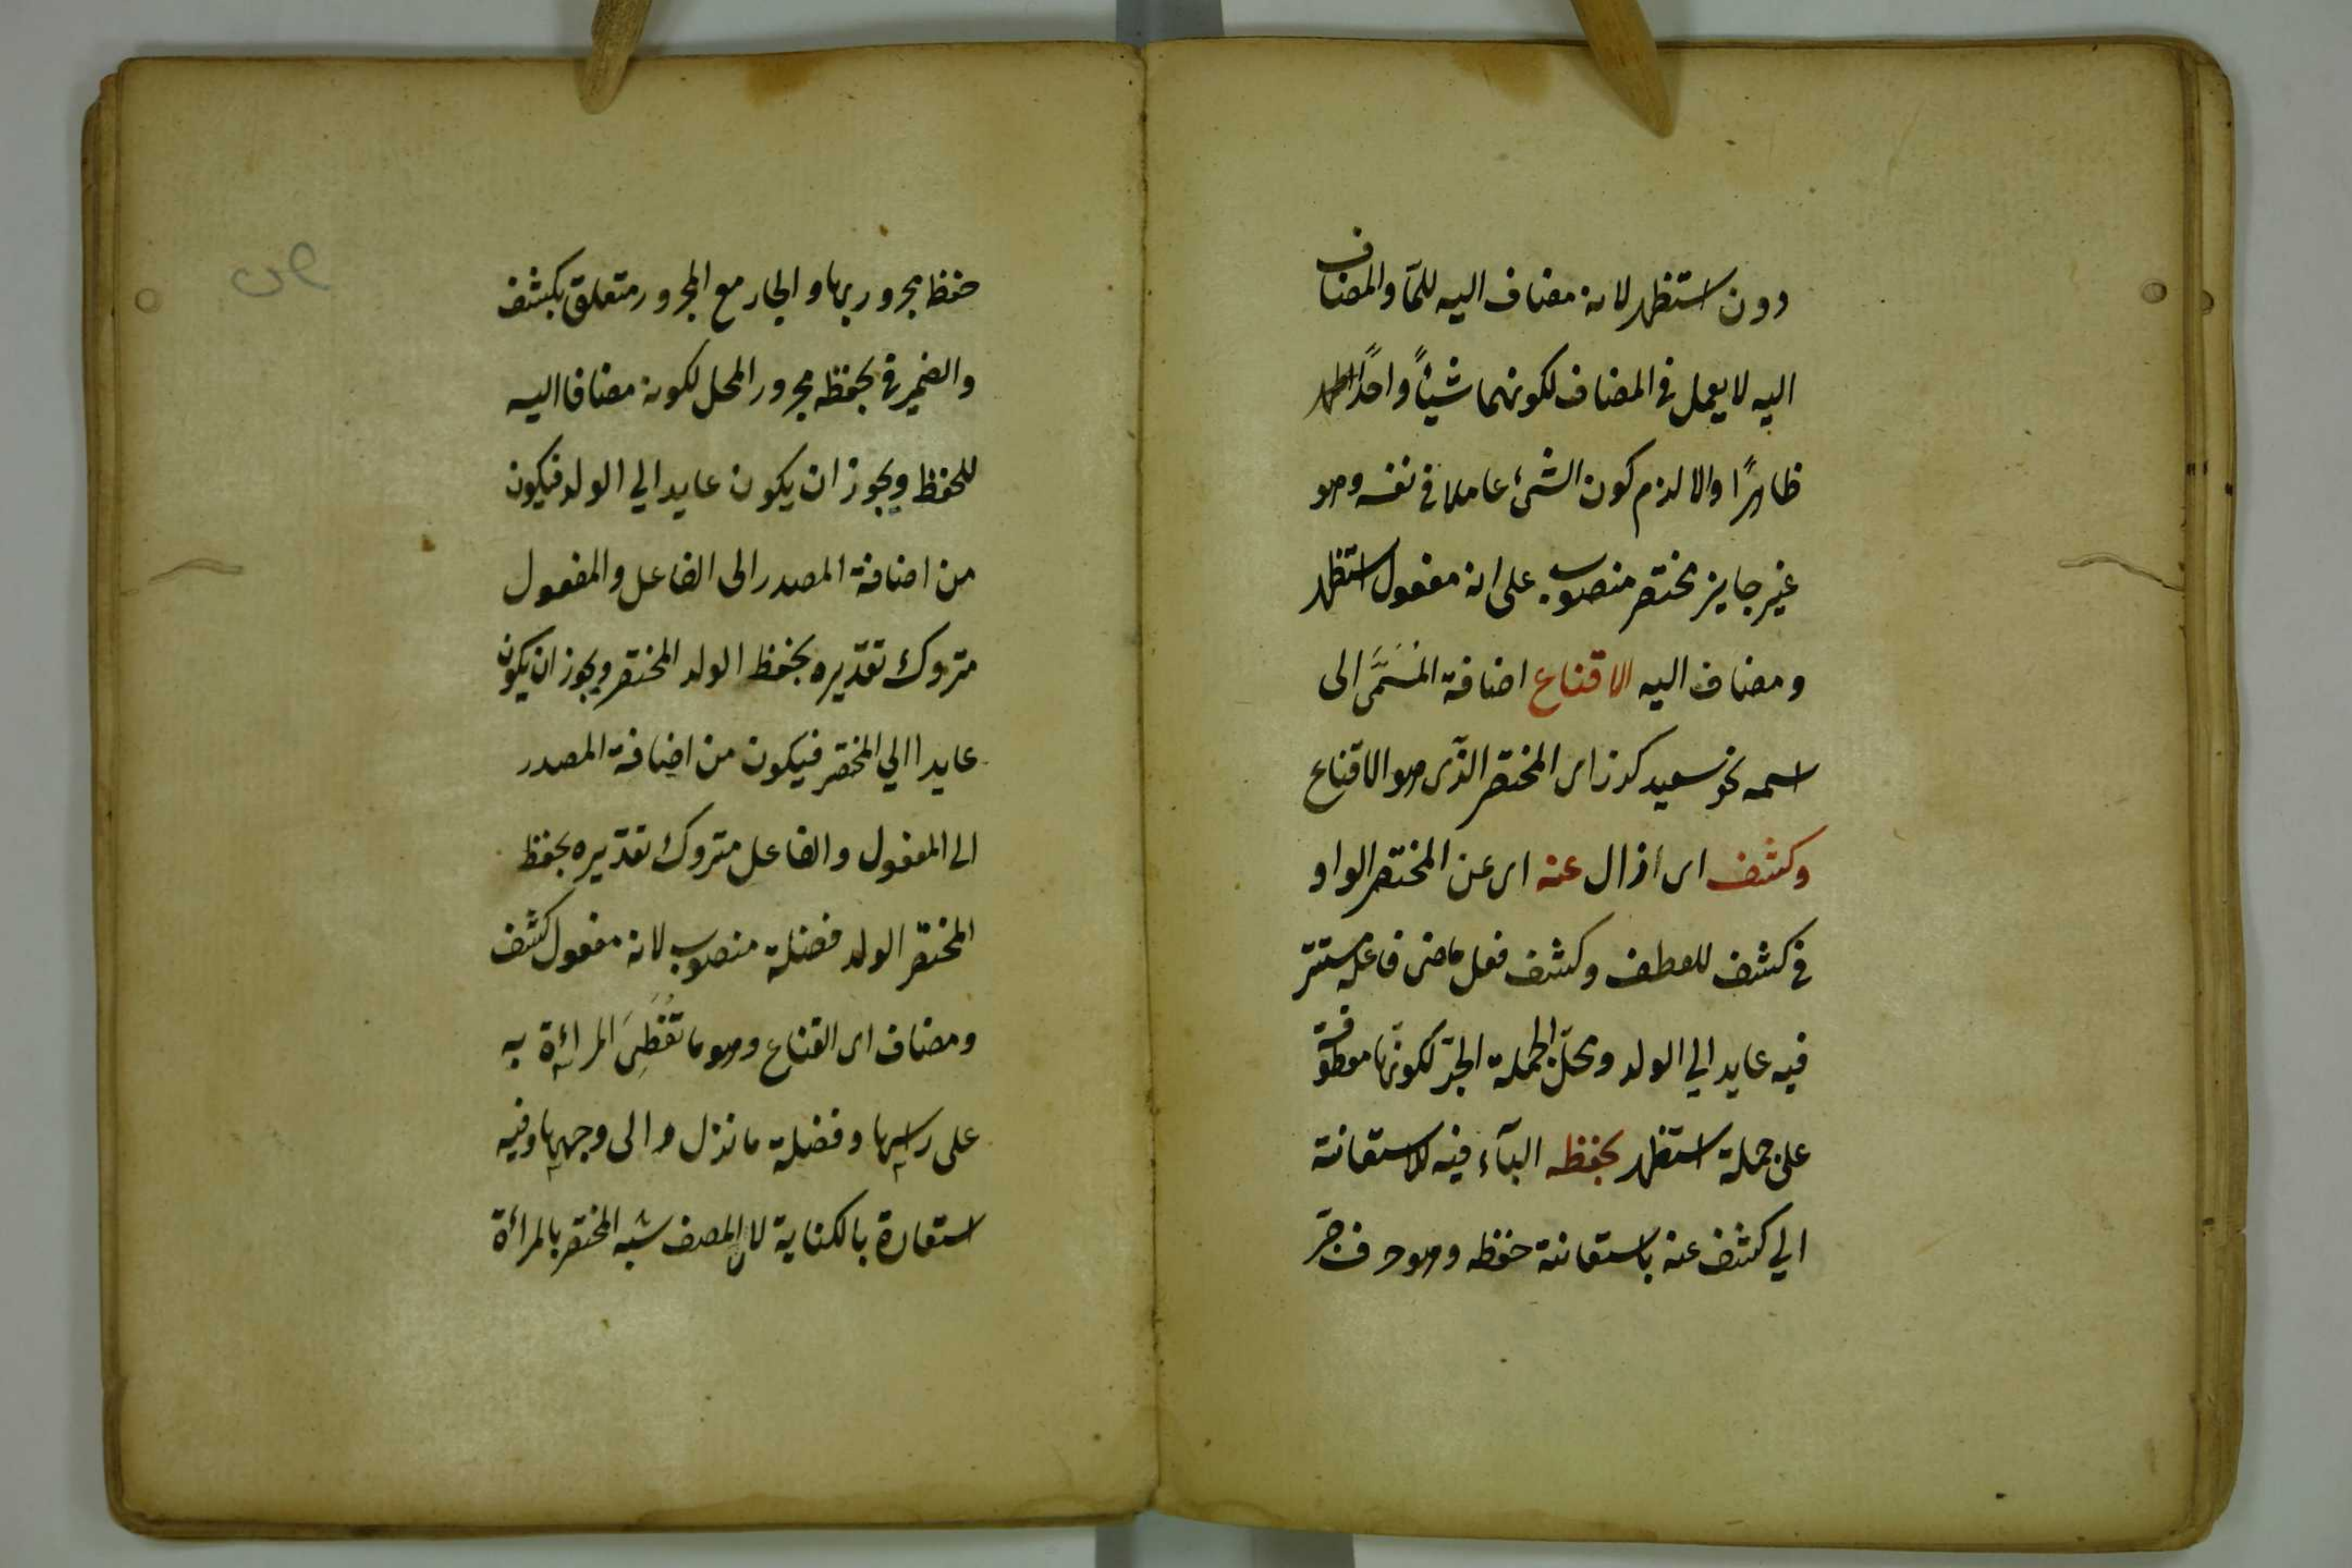 دون استظهر لانه مضاف اليه للمّا والمضاف
اليه لا يعمل في المضاف لكونهما شيئاً واحداً
ظاهرًا والا لزم كون الشئ عاملا في نفسه وهو
غير جايز مختصر منصوب على انه مفعول استظهر
ومضاف اليه الاقناع اضافة المُسَمَّى الى
اسمه نحو سعيد كرز اى المختصر الذى هو الاقناع
وكشف اى ازال عنه اى عن المختصر الواو
في كشف للعطف وكشف فعل ماضى فاعله مستتر
فيه عايد الي الولد ومحلّ الجملة الجرّ لكونها معطوفة
على جملة استظهر بحفظه البآء فيه للاستعانة
الي كشف عنه باستعانة حفظه وهو حرف جرّ
حفظ مجرور بها والجار مع المجرور متعلق بكشف
والضمير في بحفظه مجرور المحل لكونه مضافا اليه
للحفظ ويجوز ان يكون عايدا الي الولد فيكون
من اضافة المصدر الى الفاعل والمفعول
متروك تقديره بحفظ الولد المختصر ويجوز ان يكون
عايدا الي المختصر فيكون من اضافة المصدر
الى المفعول والفاعل متروك تقديره بحفظ
المختصر الولد فضلة منصوب لانه مفعول كشف
ومضاف اى القناع وهو ما تُغَطِى المرائة به
على راسها وفضلة ما نزل الى وجهها وفيه
استعارة بالكناية لان المصنف شبه المختصر بالمرأة